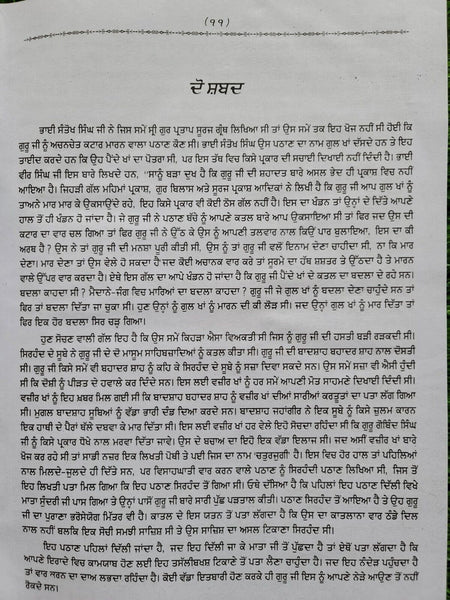 (੧੧)
ਦੋ ਸ਼ਬਦ
ਭਾਈ ਸੰਤੋਖ ਸਿੰਘ ਜੀ ਨੇ ਜਿਸ ਸਮੇਂ ਸ੍ਰੀ ਗੁਰ ਪ੍ਰਤਾਪ ਸੂਰਜ ਗ੍ਰੰਥ ਲਿਖਿਆ ਸੀ ਤਾਂ ਉਸ ਸਮੇਂ ਤਕ ਇਹ ਖੋਜ ਨਹੀਂ ਸੀ ਹੋਈ ਕਿ
ਗੁਰੂ ਜੀ ਨੂੰ ਅਚਨਚੇਤ ਕਟਾਰ ਮਾਰਨ ਵਾਲਾ ਪਠਾਣ ਕੌਣ ਸੀ। ਭਾਈ ਸੰਤੋਖ ਸਿੰਘ ਉਸ ਪਠਾਣ ਦਾ ਨਾਮ ਗੁਲ ਖਾਂ ਦੱਸਦੇ ਹਨ ਤੇ ਇਹ
ਤਾਈਦ ਕਰਦੇ ਹਨ ਕਿ ਉਹ ਪੈਂਦੇ ਖਾਂ ਦਾ ਪੋਤਰਾ ਸੀ, ਪਰ ਇਸ ਤੱਥ ਵਿਚ ਕਿਸੇ ਪ੍ਰਕਾਰ ਦੀ ਸਚਾਈ ਦਿਖਾਈ ਨਹੀਂ ਦਿੰਦੀ ਹੈ। ਭਾਈ
ਵੀਰ ਸਿੰਘ ਜੀ ਇਸ ਬਾਰੇ ਲਿਖਦੇ ਹਨ, ''ਸਾਨੂੰ ਬੜਾ ਦੁਖ ਹੈ ਕਿ ਗੁਰੂ ਜੀ ਦੀ ਸ਼ਹਾਦਤ ਬਾਰੇ ਅਸਲ ਭੇਦ ਹੀ ਪ੍ਰਕਾਸ਼ ਵਿਚ ਨਹੀਂ
ਆਇਆ ਹੈ। ਜਿਹੜੀ ਗੱਲ ਮਹਿਮਾਂ ਪ੍ਰਕਾਸ਼, ਗੁਰ ਬਿਲਾਸ ਅਤੇ ਸੂਰਜ ਪ੍ਰਕਾਸ਼ ਆਦਿਕਾਂ ਨੇ ਲਿਖੀ ਹੈ ਕਿ ਗੁਰੂ ਜੀ ਆਪ ਗੁਲ ਖਾਂ ਨੂੰ
ਤਾਅਨੇ ਮਾਰ ਮਾਰ ਕੇ ਉਕਸਾਉਂਦੇ ਰਹੇ, ਇਹ ਕਿਸੇ ਪ੍ਰਕਾਰ ਵੀ ਕੋਈ ਠੋਸ ਗੱਲ ਨਹੀਂ ਹੈ। ਇਸ ਦਾ ਖੰਡਨ ਤਾਂ ਉਨ੍ਹਾਂ ਦੇ ਦਿੱਤੇ ਆਪਣੇ
ਹਾਲ ਤੋਂ ਹੀ ਖੰਡਨ ਹੋ ਜਾਂਦਾ ਹੈ। ਜੇ ਗੁਰੂ ਜੀ ਨੇ ਪਠਾਣ ਬੱਚੇ ਨੂੰ ਆਪਣੇ ਕਤਲ ਬਾਰੇ ਆਪ ਉਕਸਾਇਆ ਸੀ ਤਾਂ ਫਿਰ ਜਦ ਉਸ ਦੀ
ਕਟਾਰ ਦਾ ਵਾਰ ਚਲ ਗਿਆ ਤਾਂ ਫਿਰ ਗੁਰੂ ਜੀ ਨੇ ਉੱਠ ਕੇ ਉਸ ਨੂੰ ਆਪਣੀ ਤਲਵਾਰ ਨਾਲ ਕਿਉਂ ਪਾਰ ਬੁਲਾਇਆ, ਇਸ ਦਾ ਕੀ
ਅਰਥ ਹੈ ? ਉਸ ਨੇ ਤਾਂ ਗੁਰੂ ਜੀ ਦੀ ਮਨਸ਼ਾ ਪੂਰੀ ਕੀਤੀ ਸੀ, ਉਸ ਨੂੰ ਤਾਂ ਗੁਰੂ ਜੀ ਵਲੋਂ ਇਨਾਮ ਦੇਣਾ ਚਾਹੀਦਾ ਸੀ, ਨਾ ਕਿ ਮਾਰ
ਦੇਣਾ। ਮਾਰ ਦੇਣਾ ਤਾਂ ਉਸ ਵੇਲੇ ਹੋ ਸਕਦਾ ਹੈ ਜਦ ਕੋਈ ਅਚਾਨਕ ਵਾਰ ਕਰੇ ਤਾਂ ਸੂਰਮੇ ਦਾ ਹੱਥ ਸ਼ਸ਼ਤਰ ਤੇ ਉੱਠਦਾ ਹੈ ਤੇ ਮਾਰਨ
ਵਾਲੇ ਉੱਪਰ ਵਾਰ ਕਰਦਾ ਹੈ। ਏਥੇ ਇਸ ਗੱਲ ਦਾ ਆਪੇ ਖੰਡਨ ਹੋ ਜਾਂਦਾ ਹੈ ਕਿ ਗੁਰੂ ਜੀ ਪੈਂਦੇ ਖਾਂ ਦੇ ਕਤਲ ਦਾ ਬਦਲਾ ਦੇ ਰਹੇ ਸਨ।
ਬਦਲਾ ਕਾਹਦਾ ਸੀ ? ਮੈਦਾਨੇ-ਜੰਗ ਵਿਚ ਮਾਰਿਆਂ ਦਾ ਬਦਲਾ ਕਾਹਦਾ ? ਗੁਰੂ ਜੀ ਜੇ ਗੁਲ ਖਾਂ ਨੂੰ ਬਦਲਾ ਦੇਣਾ ਚਾਹੁੰਦੇ ਸਨ ਤਾਂ
ਫਿਰ ਤਾਂ ਬਦਲਾ ਦਿੱਤਾ ਜਾ ਚੁਕਾ ਸੀ। ਹੁਣ ਉਨ੍ਹਾਂ ਨੂੰ ਗੁਲ ਖਾਂ ਨੂੰ ਮਾਰਨ ਦੀ ਕੀ ਲੋੜ ਸੀ। ਜਦ ਉਨ੍ਹਾਂ ਗੁਲ ਖਾਂ ਨੂੰ ਮਾਰ ਦਿੱਤਾ ਤਾਂ
ਫਿਰ ਇਕ ਹੋਰ ਬਦਲਾ ਸਿਰ ਚੜ੍ਹ ਗਿਆ।
ਹੁਣ ਸੋਚਣ ਵਾਲੀ ਗੱਲ ਇਹ ਹੈ ਕਿ ਉਸ ਸਮੇਂ ਕਿਹੜਾ ਐਸਾ ਵਿਅਕਤੀ ਸੀ ਜਿਸ ਨੂੰ ਗੁਰੂ ਜੀ ਦੀ ਹਸਤੀ ਬੜੀ ਰੜਕਦੀ ਸੀ।
ਸਿਰਹੰਦ ਦੇ ਸੂਬੇ ਨੇ ਗੁਰੂ ਜੀ ਦੇ ਦੋ ਮਾਸੂਮ ਸਾਹਿਬਜ਼ਾਦਿਆਂ ਨੂੰ ਕਤਲ ਕੀਤਾ ਸੀ। ਗੁਰੂ ਜੀ ਦੀ ਬਾਦਸ਼ਾਹ ਬਹਾਦਰ ਸ਼ਾਹ ਨਾਲ ਦੋਸਤੀ
ਸੀ। ਗੁਰੂ ਜੀ ਕਿਸੇ ਸਮੇਂ ਵੀ ਬਾਦਸ਼ਾਹ ਬਹਾਦਰ ਸ਼ਾਹ ਨੂੰ ਕਹਿ ਕੇ ਸਿਰਹੰਦ ਦੇ ਸੂਬੇ ਨੂੰ ਸਜ਼ਾ ਦਿਵਾ ਸਕਦੇ ਸਨ। ਉਸ ਸਮੇਂ ਸਜ਼ਾ ਵੀ ਐਸੀ ਹੁੰਦੀ
ਸੀ ਕਿ ਦੋਸ਼ੀ ਨੂੰ ਪੀੜਤ ਦੇ ਹਵਾਲੇ ਕਰ ਦਿੰਦੇ ਸਨ। ਇਸ ਲਈ ਵਜ਼ੀਰ ਖਾਂ ਨੂੰ ਹਰ ਸਮੇਂ ਆਪਣੀ ਮੌਤ ਸਾਹਮਣੇ ਦਿਖਾਈ ਦਿੰਦੀ ਸੀ।
ਵਜ਼ੀਰ ਖਾਂ ਨੂੰ ਇਹ ਖ਼ਬਰ ਮਿਲ ਗਈ ਸੀ ਕਿ ਬਾਦਸ਼ਾਹ ਬਹਾਦਰ ਸ਼ਾਹ ਨੂੰ ਵਜ਼ੀਰ ਖਾਂ ਦੀਆਂ ਸਾਰੀਆਂ ਕਰਤੂਤਾਂ ਦਾ ਪਤਾ ਲੱਗ ਗਿਆ
ਸੀ। ਮੁਗਲ ਬਾਦਸ਼ਾਹ ਸੂਬਿਆਂ ਨੂੰ ਵੱਡਾ ਭਾਰੀ ਦੰਡ ਦਿਆ ਕਰਦੇ ਸਨ। ਬਾਦਸ਼ਾਹ ਜਹਾਂਗੀਰ ਨੇ ਇਕ ਸੂਬੇ ਨੂੰ ਕਿਸੇ ਜ਼ੁਲਮ ਕਾਰਨ
ਇਕ ਹਾਥੀ ਦੇ ਪੈਰਾਂ ਥੱਲੇ ਦਬਵਾ ਕੇ ਮਾਰ ਦਿੱਤਾ ਸੀ। ਇਸ ਲਈ ਵਜ਼ੀਰ ਖਾਂ ਹਰ ਵੇਲੇ ਇਹੋ ਸੋਚਦਾ ਰਹਿੰਦਾ ਸੀ ਕਿ ਗੁਰੂ ਗੋਬਿੰਦ ਸਿੰਘ
ਜੀ ਨੂੰ ਕਿਸੇ ਪ੍ਰਕਾਰ ਧੋਖੇ ਨਾਲ ਮਰਵਾ ਦਿੱਤਾ ਜਾਵੇ। ਉਸ ਦੇ ਬਚਾਅ ਦਾ ਇਹੋ ਇਕ ਵੱਡਾ ਇਲਾਜ ਸੀ। ਜਦ ਅਸੀਂ ਵਜ਼ੀਰ ਖਾਂ ਬਾਰੇ
ਖੋਜ ਕਰ ਰਹੇ ਸੀ ਤਾਂ ਸਾਡੀ ਨਜ਼ਰ ਇਕ ਲਿਖਤੀ ਪੋਥੀ ਤੇ ਪਈ ਜਿਸ ਦਾ ਨਾਮ 'ਚਤੁਰਜੁਗੀ' ਹੈ। ਇਸ ਵਿਚ ਹੋਰ ਹਾਲ ਤਾਂ ਪਹਿਲਿਆਂ
ਨਾਲ ਮਿਲਦੇ-ਜੁਲਦੇ ਹੀ ਦਿੱਤੇ ਸਨ, ਪਰ ਵਿਸਾਹਘਾਤੀ ਵਾਰ ਕਰਨ ਵਾਲੇ ਪਠਾਣ ਨੂੰ ਸਿਰਹੰਦੀ ਪਠਾਣ ਲਿਖਿਆ ਸੀ, ਜਿਸ ਤੋਂ
ਇਹ ਲਿਖਤੀ ਪਤਾ ਮਿਲ ਗਿਆ ਕਿ ਇਹ ਪਠਾਣ ਸਿਰਹੰਦ ਤੋਂ ਗਿਆ ਸੀ। ਓਥੇ ਦੱਸਿਆ ਹੈ ਕਿ ਪਹਿਲਾਂ ਇਹ ਪਠਾਣ ਦਿੱਲੀ ਵਿਖੇ
ਮਾਤਾ ਸੁੰਦਰੀ ਜੀ ਪਾਸ ਗਿਆ ਤੇ ਉਨ੍ਹਾਂ ਪਾਸੋਂ ਗੁਰੂ ਜੀ ਬਾਰੇ ਸਾਰੀ ਪੁੱਛ ਪੜਤਾਲ ਕੀਤੀ। ਪਠਾਣ ਸਿਰਹੰਦ ਤੋਂ ਆਇਆ ਹੈ ਤੇ ਉਹ ਗੁਰੂ
ਜੀ ਦਾ ਪੁਰਾਣਾ ਭਰੋਸੇਯੋਗ ਮਿੱਤਰ ਵੀ ਹੈ। ਕਾਤਲ ਦੇ ਇਸ ਯਤਨ ਤੋਂ ਪਤਾ ਲੱਗਦਾ ਹੈ ਕਿ ਉਸ ਦਾ ਕਾਤਲਾਨਾ ਵਾਰ ਠੰਡੇ ਦਿਲ
ਨਾਲ ਨਹੀਂ ਬਲਕਿ ਇਕ ਸੋਚੀ ਸਮਝੀ ਸਾਜ਼ਿਸ਼ ਸੀ ਤੇ ਉਸ ਸਾਜ਼ਿਸ਼ ਦਾ ਅਸਲ ਟਿਕਾਣਾ ਸਿਰਹੰਦ ਸੀ।
ਇਹ ਪਠਾਣ ਪਹਿਲਾਂ ਦਿੱਲੀ ਜਾਂਦਾ ਹੈ, ਜਦ ਇਹ ਦਿੱਲੀ ਜਾ ਕੇ ਮਾਤਾ ਜੀ ਤੋਂ ਪੁੱਛਦਾ ਹੈ ਤਾਂ ਏਥੋਂ ਪਤਾ ਲੱਗਦਾ ਹੈ ਕਿ
ਆਪਣੇ ਇਰਾਦੇ ਵਿਚ ਕਾਮਯਾਬ ਹੋਣ ਲਈ ਇਹ ਤਸੱਲੀਬਖਸ਼ ਟਿਕਾਣੇ ਤੋਂ ਪਤਾ ਲੈਣਾ ਚਾਹੁੰਦਾ ਹੈ। ਜਦ ਇਹ ਨੰਦੇੜ ਪਹੁੰਚਦਾ ਹੈ
ਤਾਂ ਵਾਰ ਕਰਨ ਦਾ ਦਾਅ ਲਭਦਾ ਰਹਿੰਦਾ ਹੈ। ਕੋਈ ਵੱਡਾ ਇਤਬਾਰੀ ਹੋਣ ਕਰਕੇ ਹੀ ਗੁਰੂ ਜੀ ਇਸ ਨੂੰ ਆਪਣੇ ਨੇੜੇ ਆਉਣ ਤੋਂ ਨਹੀਂ
ਰੋਕਦੇ ਸਨ।